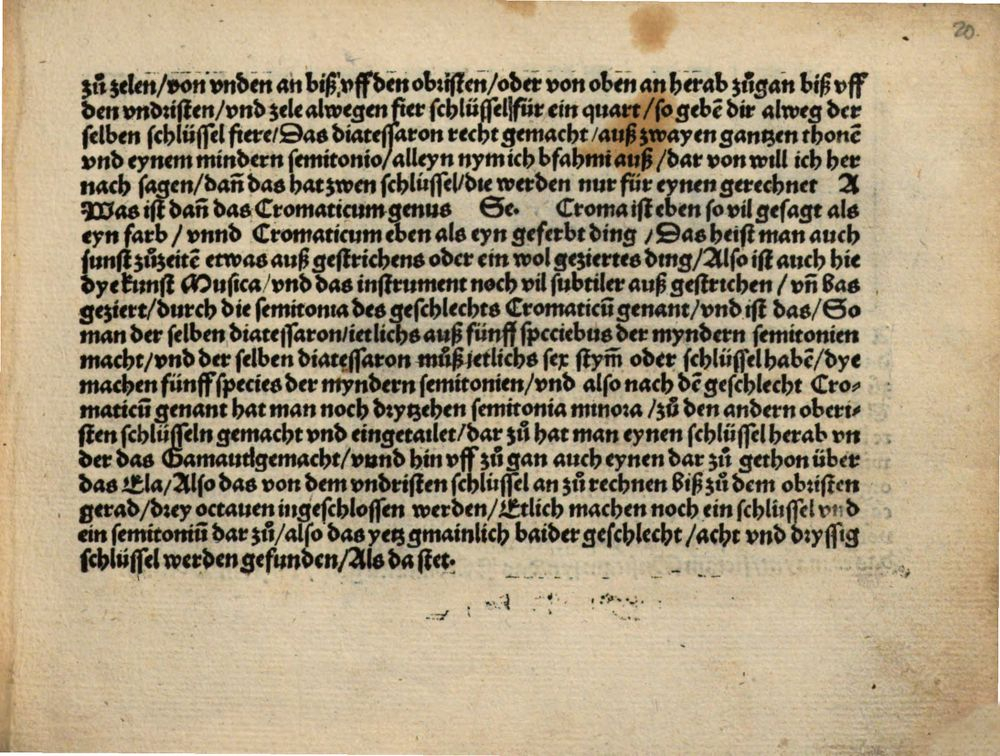 20
zů zelen/von vnden an biß vff den obristen/oder von oben an herab zůgan biß vff
den vndristen/vnd zele alwegen fier schlüssel für ein quart/so gebẽ dir alweg der
selben schlüssel fiere/Das diatessaron recht gemacht/auß zwayen gantzen thonẽ
vnd eynem mindern semitonio/alleyn nym ich bfahmi auß/dar von will ich her
nach sagen/dañ das hat zwen schlüssel/die werden nur für eynen gerechnet A
Was ist dañ das Cromaticum genus Se. Croma ist eben so vil gesagt als
eyn farb/vnnd Cromaticum eben als eyn geferbt ding/Das heist man auch
sunst zůzeitẽ etwas auß gestrichens oder ein wol geziertes ding/Also ist auch hie
dye kunst Musica/vnd das instrument noch vil subtiler auß gestrichen/vñ bas
geziert/durch die semitonia des geschlechts Cromaticũ genant/vnd ist das/So
man der selben diatessaron/ietlichs auß fünff spcciebus der myndern semitonien
macht/vnd der selben diatessaron můß jetlichs sex stym̃ oder schlüssel habẽ/dye
machen fünff species der myndern semitonien/vnd also nach dẽ geschlecht Cro-
maticũ genant hat man noch drytzehen semitonia minora/zů den andern oberi-
sten schlüsseln gemacht vnd eingetailet/dar zů hat man eynen schlüssel herab vn
der das Gamautlgemacht/vnnd hin vff zů gan auch eynen dar zů gethon über
das Ela/Also das von dem vndristen schlüssel an zů rechnen biß zů dem obristen
gerad/drey octauen ingeschlossen werden/Etlich machen noch ein schlüssel vnd
ein semitoniũ dar zů/also das yetz gmainlich baider geschlecht/acht vnd dryssig
schlüssel werden gefunden/Als da stet.